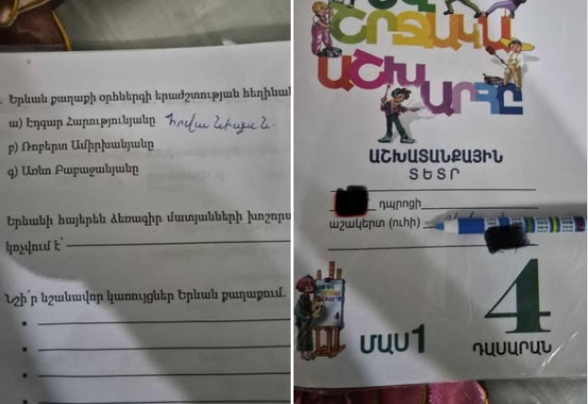 Երևան քաղաքի օրհներգի երաժշտության հեղինակ
ա) Էդգար Հարությունյանը
բ) Ռոբերտ Ամիրխանյանը
գ) Առնո Բաբաջանյանը
Երևանի հայերեն ձեռագիր մատյանների խոշոր
կոչվում է՝
Նշի՛ր նշանավոր կառույցներ Երևան քաղաքում.
ՇՐՋԱԿԱ
ԱՇԽԱՐՀԸ
ԱՇԽԱՏԱՆՔԱՅԻՆ
ՏԵՏՐ
դպրոցի
աշակերտ (ուհի)
4
ՄԱՍ 1
ԴԱՍԱՐԱՆ